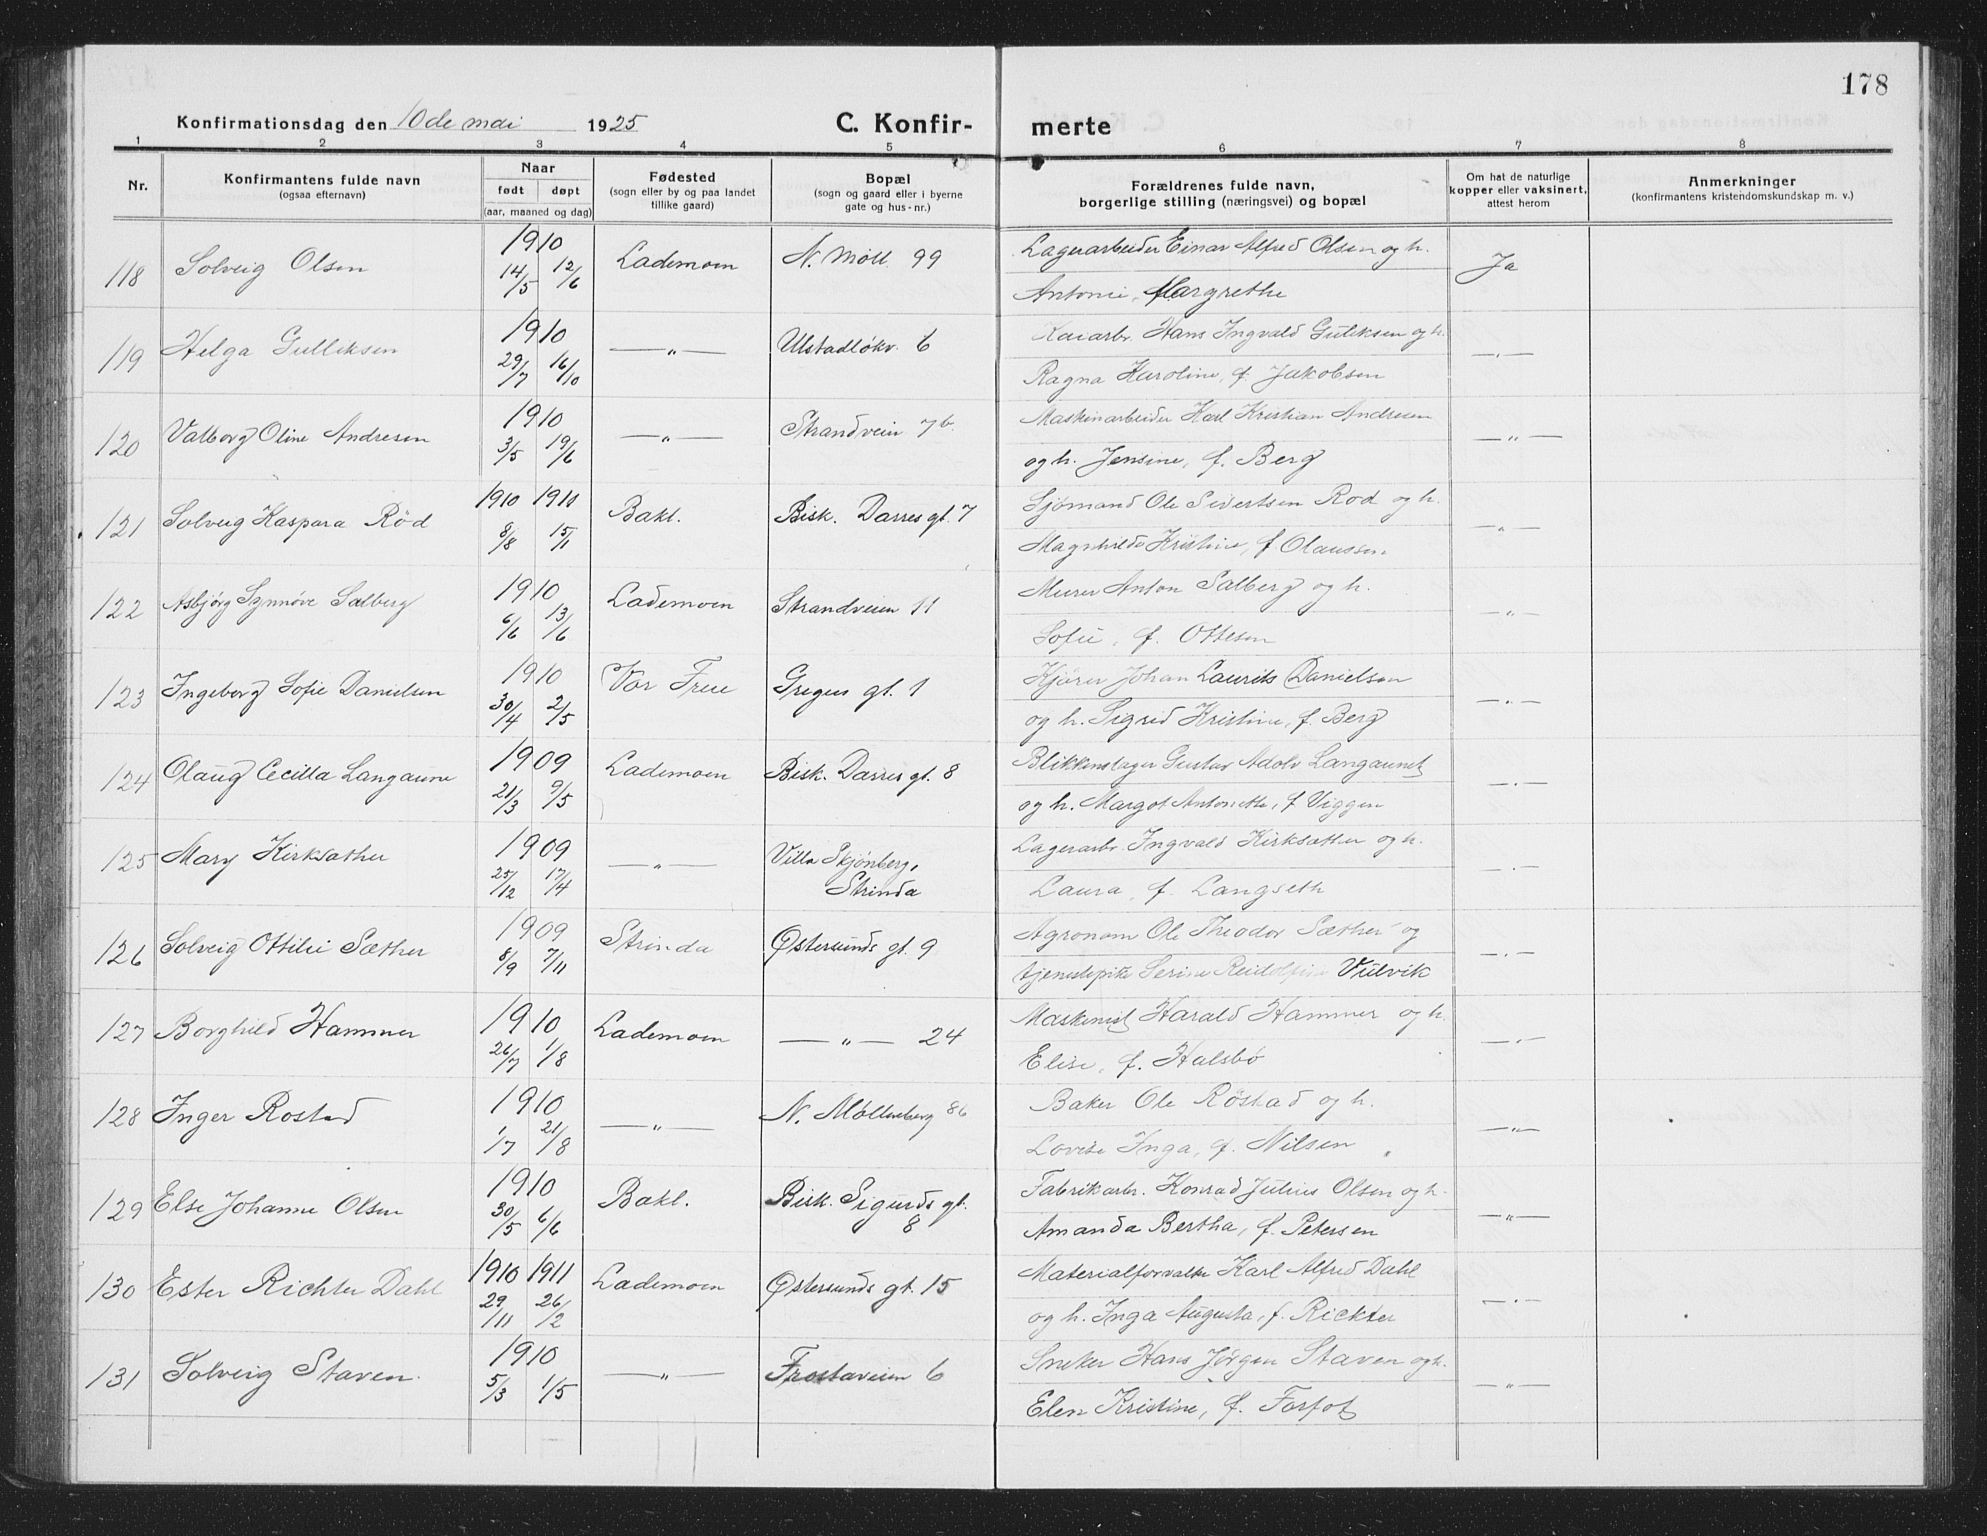 178
Konfirmationsdag den 10de mai 1925 C. Konfir- merte
1 2 3 4 5 6 7 8
Nr. Konfirmantens fulde navn (ogsaa efternavn) Naar født døpt (aar, maaned og dag) Fødested (sogn eller by og paa landet tillike gaard) Bopæl (sogn og gaard eller i byerne gate og hus-nr.) Forældrenes fulde navn, borgerlige stilling (næringsvei) og bopæl Om hat de naturlige kopper eller vaksinert, attest herom Anmerkninger (konfirmantens kristendomskundskap m. v.)
118 Solveig Olsen 1910 14/5 12/6 Lademoen N. Möll. 99 Lagerarbeider Einar Alfred Olsen og h. Ja
Antonie, Margrethe
119 Helga Gulliksen 1910 29/7 16/10 —"— Ulstadløkv. 6 Kaiarbr. Hans Ingvald Guliksen og h. —"—
Ragna Karoline, f. Jakobsen
120 Valborg Oline Andresen 1910 3/5 19/6 —"— Strandvein 7b. Maskinarbeider Karl Kristian Andresen —"—
og h. Jensine, f. Berg
121 Solveig Kaspara Röd 1910 1910 8/8 15/1 Bakl. Bisk. Darres gt. 7 Sjømand Ole Sivertsen Rod og h. —"—
Magnhilde Kristine, f. Olaussen
122 Asbjörg Synnöve Salberg 1910 6/6 13/6 Lademoen Strandveien 11 Murer Anton Salberg og h. —"—
Sofie, f. Ottesen
123 Ingeborg Sofie Danielsen 1910 30/4 2/5 Vor Frue Gregus gt. 1 Kjører Johan Laurits Danielsen —"—
og h. Sigrid Kristine, f. Berg
124 Olaug Cecilla Langaune 1909 21/3 9/5 Lademoen Bisk. Darres gt. 8 Blikkenslager Gustav Adolv Langaunet —"—
og h. Margot Antonette, f Viggen
125 Mary Kirksæther 1909 25/12 17/4 —"— Villa Skjønberg, Strinda Lagerarbr. Ingvald Kirksæther og h. —"—
Laura, f. Langseth
126 Solveig Ottilie Sæther 1909 8/9 7/11 Strinda Østersunds gt. 9 Agronom Ole Theodor Sæther og —"—
tjenestepike Serine Reidolfine Vulvik
127 Borghild Hammer 1910 26/7 1/8 Lademoen —"— 24 Maskinist Harald Hammer og h. —"—
Elise, f. Halsbö
128 Inger Rostad 1910 1/7 21/8 —"— N. Möllenberg 86 Baker Ole Röstad og h. —"—
Lovise Inga, f. Nilsen
129 Else Johanne Olsen 1910 30/5 6/6 Bakl. Bisk. Sigurds gt. 8 Fabrikarbr. Konrad Julius Olsen og h. —"—
Amanda Bertha, f. Petersen
130 Ester Richter Dahl 1910 1911 29/11 26/2 Lademoen Østersunds gt. 15 Materialforvalter Karl Alfred Dahl —"—
og h. Inga Augusta, f. Rickter
131 Solveig Staven. 1910 5/3 1/5 —"— Frostaveien 6 Sneker Hans Jörgen Staven og h. —"—
Elen Kristine, f. Forfot